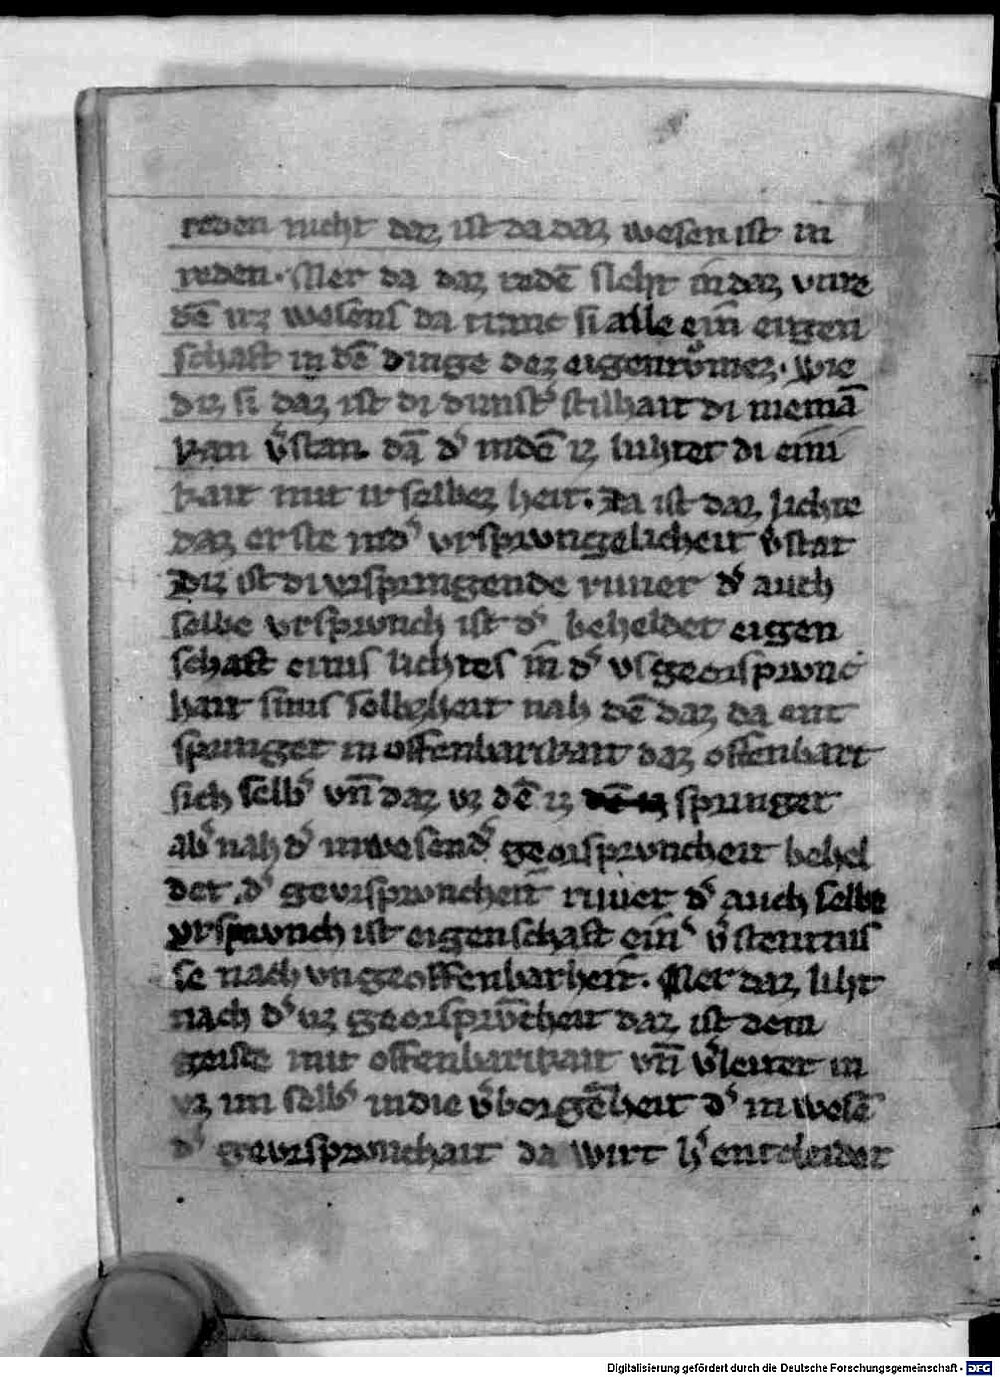 reden nicht daz ist da daz wesen ist in
reden. Mer da daz redē sleht in daz vnre
dē vz wesens da nimt si alle einē eigen
schaft in dē dinge dez eigentů mez. wie
diz si daz ist di dunstˢ stilhait di niemā
kan v̾stan dā dˢ indē iz luhtet di eini
kait mit ir selbez heit. Da ist daz lichte
daz erste indˢ vrsprungelicheit v̾stat
Diz ist di vrspringende riuier dˢ auch
selbe vrsprunch ist dˢ beheldet eigen
schaft einis lichtes in dˢ vsgeorsprunc
hait sinis selbzheit nah dē daz da ent
springet in offenbarikait daz offenbart
sich selbˢ vn̄ daz vz dē iz springet
abˢ nah dˢ inwesendˢ georspruncheit behel
det dˢ gevrspruncheit riuier dˢ auch selbe
vrsprunch ist eigenschaft einˢ v̾stentnis
se nach vngeoffenbarheit. Mer daz liht
nach dˢ vz georsprūcheit daz ist dem
geiste mit offenbarikait vn̄ v̾leitet in
vz im selbˢ indie v̾borgēheit dˢ in wesē
dˢ gevrsprunchait da wirt hˢ entcleidet
Digitalisierung gefördert durch die Deutsche Forschungsgemeinschaft - DFG